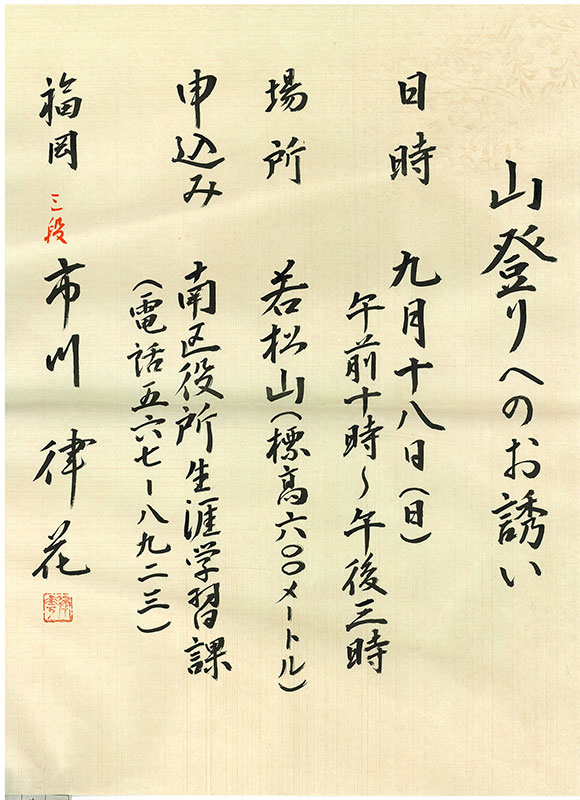 山登りへのお誘い
日時 九月十八日(日)
午前十時～午後三時
場所 若松山(標高六〇〇メートル)
申込み 南区役所生涯学習課
(電話五六七ー八九二三)
福岡 三段 市川 律花